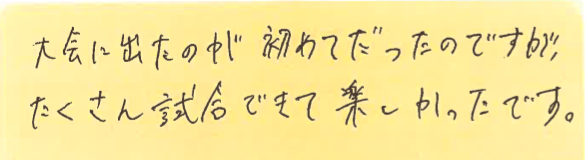 大会に出たのが初めてだったのですが、
たくさん試合できて楽しかったです。